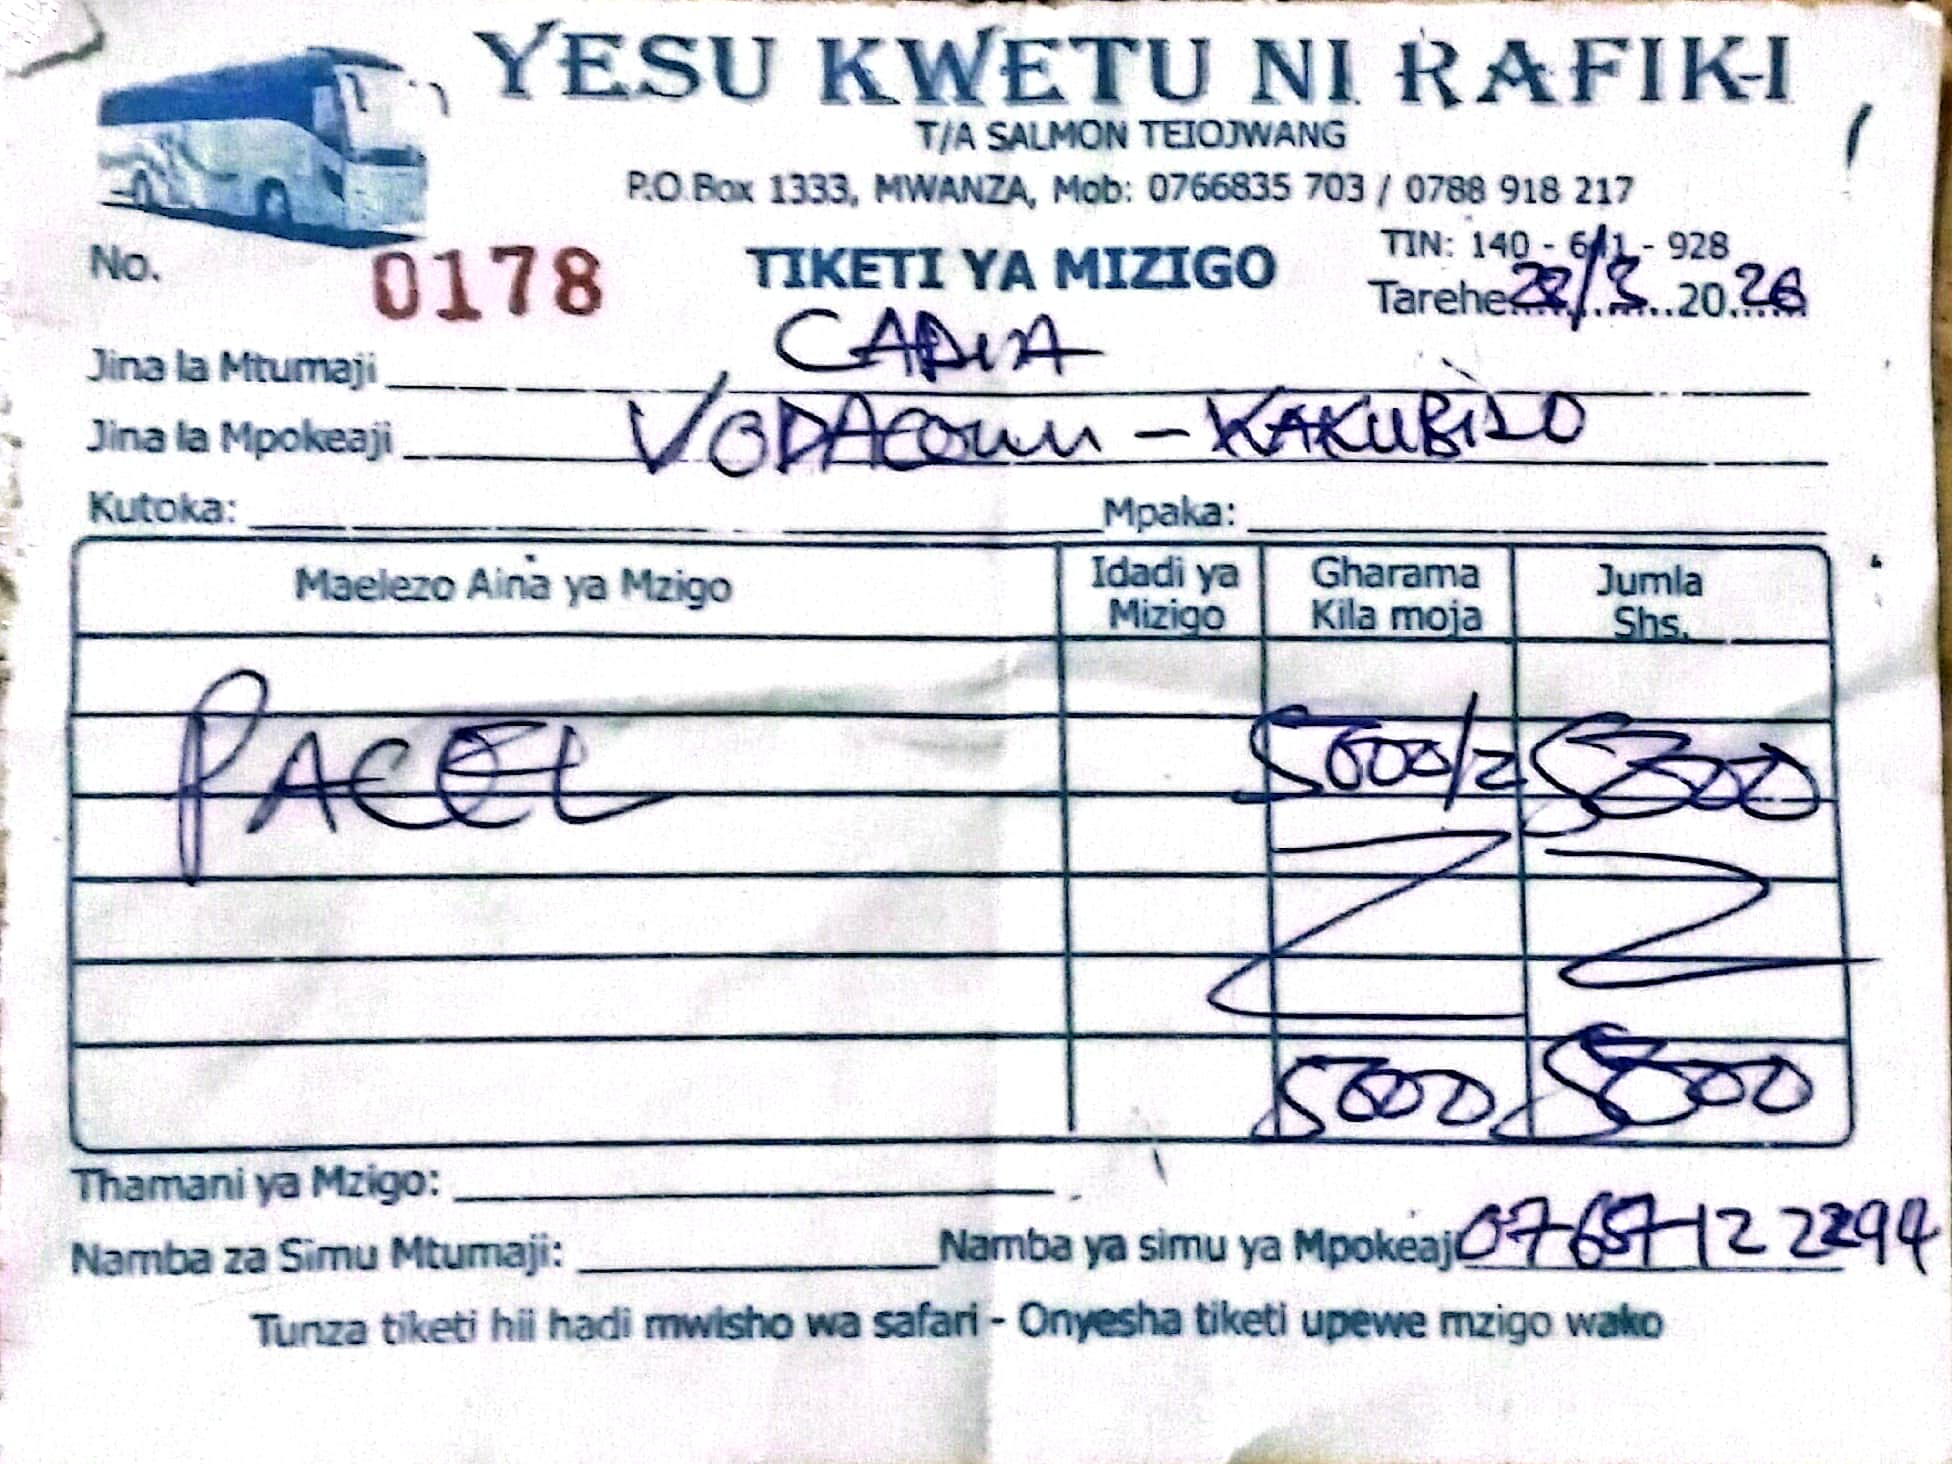 YESU KWETU NI RAFIKI
T/A SALMON TEIOJWANG
P.O.Box 1333, MWANZA, Mob: 0766835 703 / 0788 918 217
TIN: 140 - 641 - 928
No. 0178 TIKETI YA MIZIGO
Tarehe 22/3 2026
Jina la Mtumaji
Jina la Mpokeaji VODACOMM -
Kutoka: Mpaka:
Maelezo Aina ya Mzigo Idadi ya Mizigo Gharama Kila moja Jumla Shs.
PACEL 5000/= 5000
5000 5000
Thamani ya Mzigo:
Namba za Simu Mtumaji: Namba ya simu ya Mpokeaji
Tunza tiketi hii hadi mwisho wa safari - Onyesha tiketi upewe mzigo wako